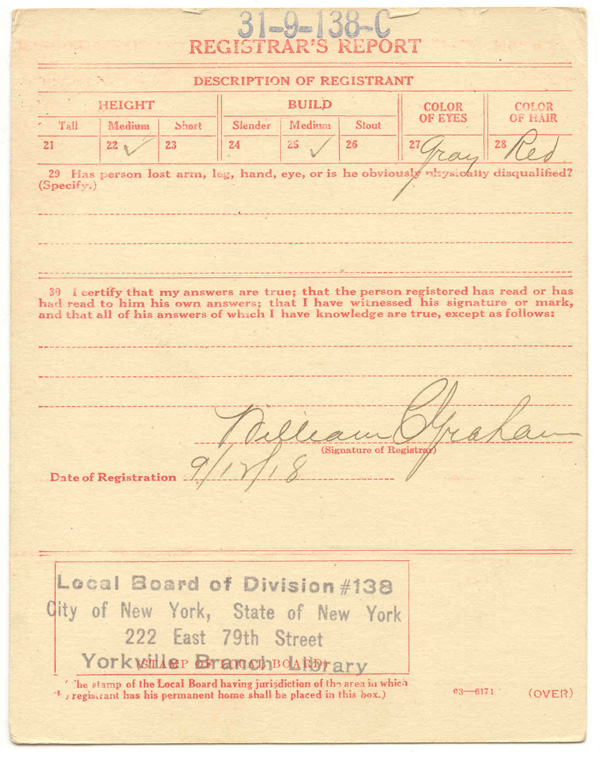 31-9-138-C
REGISTRAR'S REPORT
DESCRIPTION OF REGISTRANT
HEIGHT BUILD COLOR OF EYES COLOR OF HAIR
Tall Medium Short Slender Medium Stout
21 22 ✓ 23 24 25 ✓ 26 27 Gray 28 Red
29 Has person lost arm, leg, hand, eye, or is he obviously physically disqualified?
(Specify.)
30 I certify that my answers are true; that the person registered has read or has
had read to him his own answers; that I have witnessed his signature or mark,
and that all of his answers of which I have knowledge are true, except as follows:
William C Graham
(Signature of Registrar)
Date of Registration 9/12/18
Local Board of Division #138
City of New York, State of New York
222 East 79th Street
Yorkville Branch Library
(STAMP OF LOCAL BOARD)
The stamp of the Local Board having jurisdiction of the area in which
registrant has his permanent home shall be placed in this box.)
03—6171 (OVER)